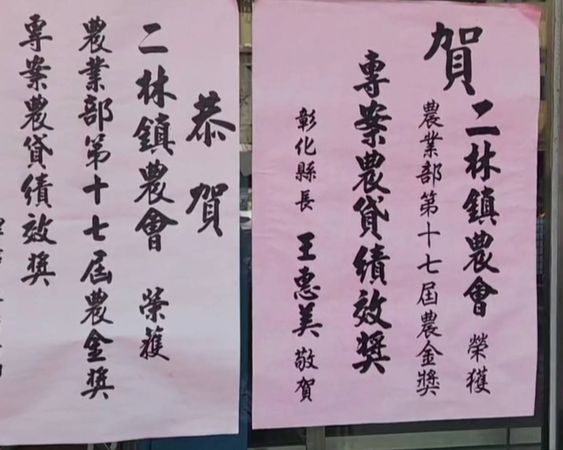 賀
二林鎮農會 榮獲
農業部第十七屆農金獎
專案農貸績效獎
彰化縣長 王惠美 敬賀
恭賀
二林鎮農會 榮獲
農業部第十七屆農金獎
專案農貸績效獎